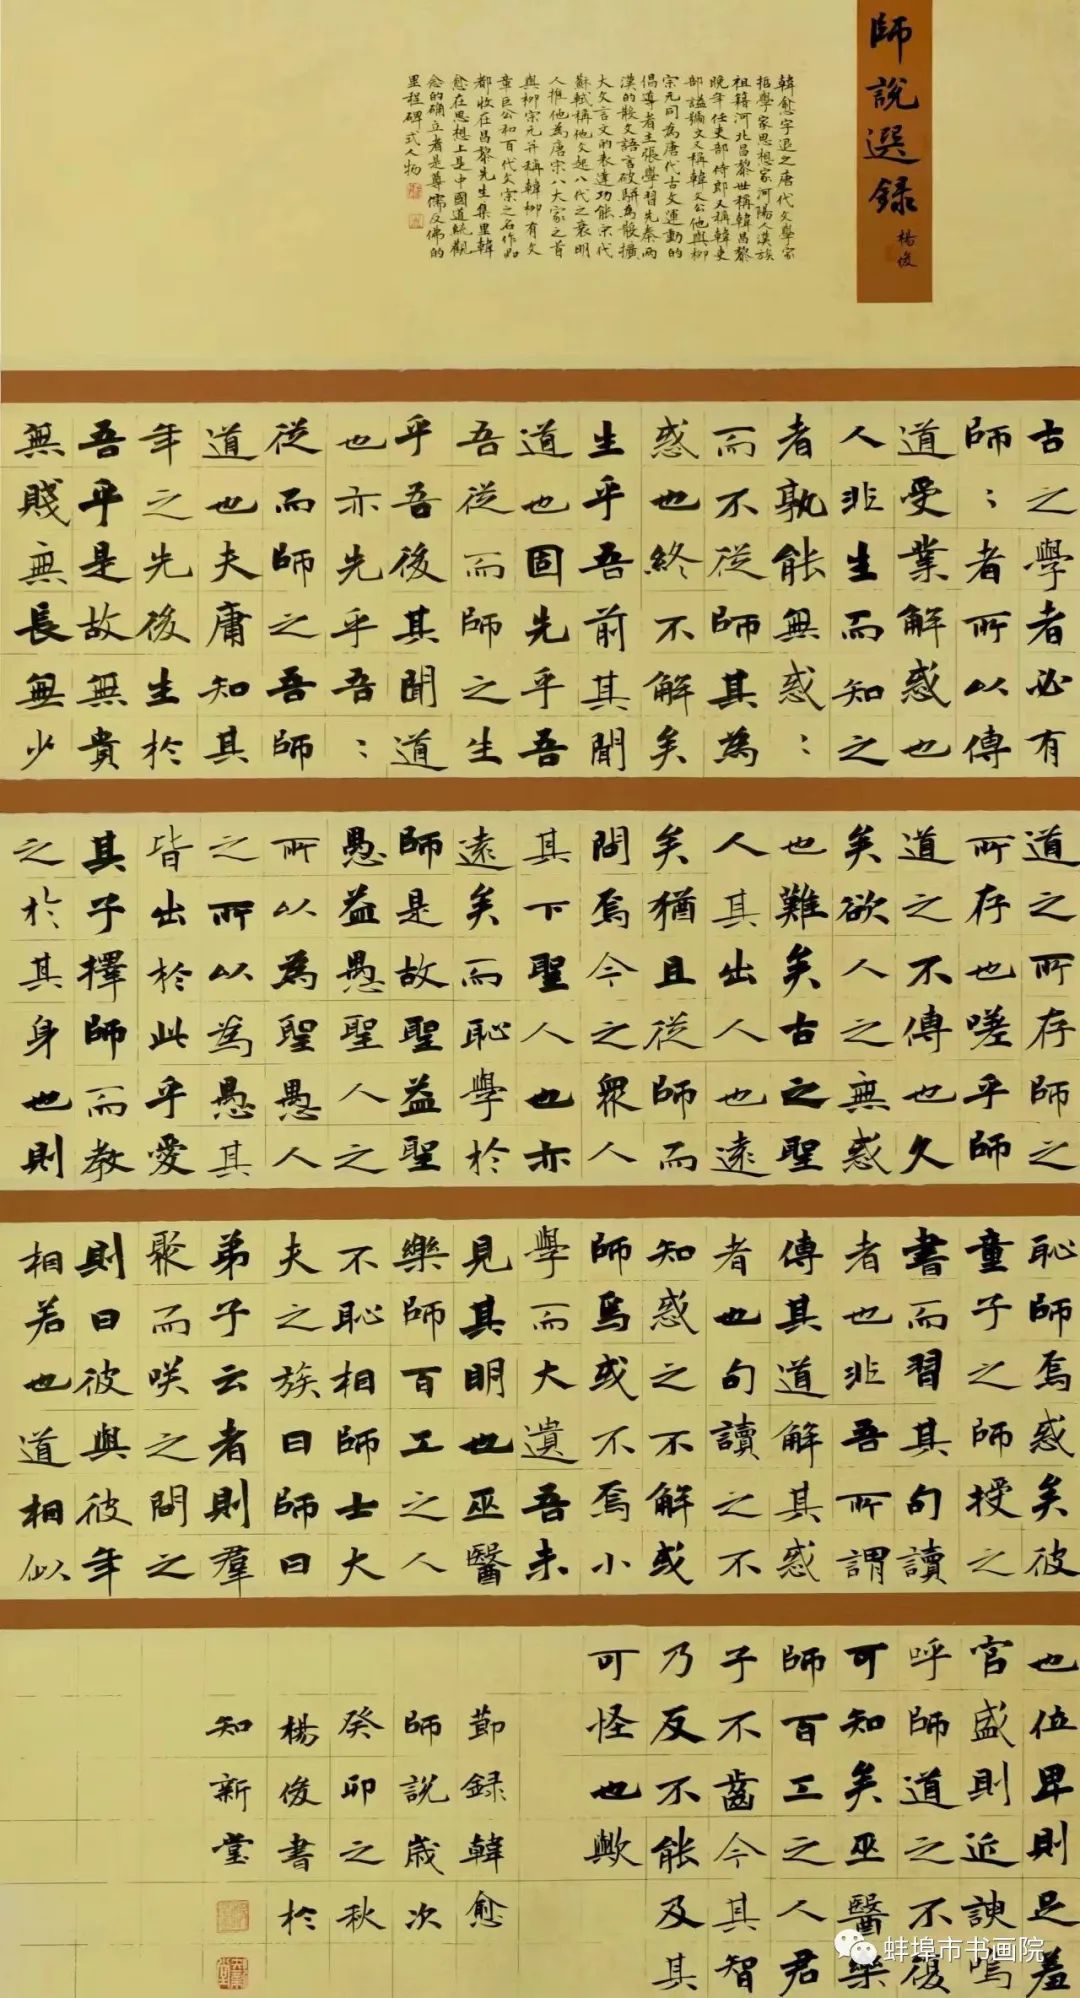 師說選録
楊俊
韓愈字退之唐代文學家
哲學家思想家河陽人漢族
祖籍河北昌黎世稱韓昌黎
晚年任吏部侍郎又稱韓吏
部謚號文又稱韓文公他與柳
宗元同為唐代古文運動的
倡導者主張學習先秦两
漢的散文語言破駢為散擴
大文言文的表達功能宋代
蘇軾稱他文起八代之衰明
人推他為唐宋八大家之首
與柳宗元并稱韓柳有文
章巨公和百代文宗之名作品
都收在昌黎先生集里韓
愈在思想上是中國道統觀
念的确立者是尊儒反佛的
里程碑式人物
古之學者必有
師:者所以傳
道受業解惑也
人非生而知之
者孰能無惑:
而不從師其為
惑也終不解矣
生乎吾前其聞
道也固先乎吾
吾從而師之生
乎吾後其聞道
也亦先乎吾:
從而師之吾師
道也夫庸知其
年之先後生於
吾乎是故無貴
無賤無長無少
道之所存師之
所存也嗟乎師
道之不傳也久
矣欲人之無惑
也難矣古之聖
人其出人也遠
矣猶且從師而
問焉今之眾人
其下聖人也亦
遠矣而恥學於
師是故聖益聖
愚益愚聖人之
所以為聖愚人
之所以為愚其
皆出於此乎愛
其子擇師而教
之於其身也則
恥師焉惑矣彼
童子之師授之
書而習其句讀
者也非吾所謂
傳其道解其惑
者也句讀之不
知惑之不解或
師焉或不焉小
學而大遺吾未
見其明也巫醫
樂師百工之人
不恥相師士大
夫之族曰師曰
弟子云者則羣
聚而咲之問之
則曰彼與彼年
相若也道相似
也位卑則足羞
官盛則近諛嗚
呼師道之不復
可知矣巫醫樂
師百工之人君
子不齒今其智
乃反不能及其
可怪也歟
節録韓愈
師說歲次
癸卯之秋
楊俊書於
知新堂
蚌埠市书画院